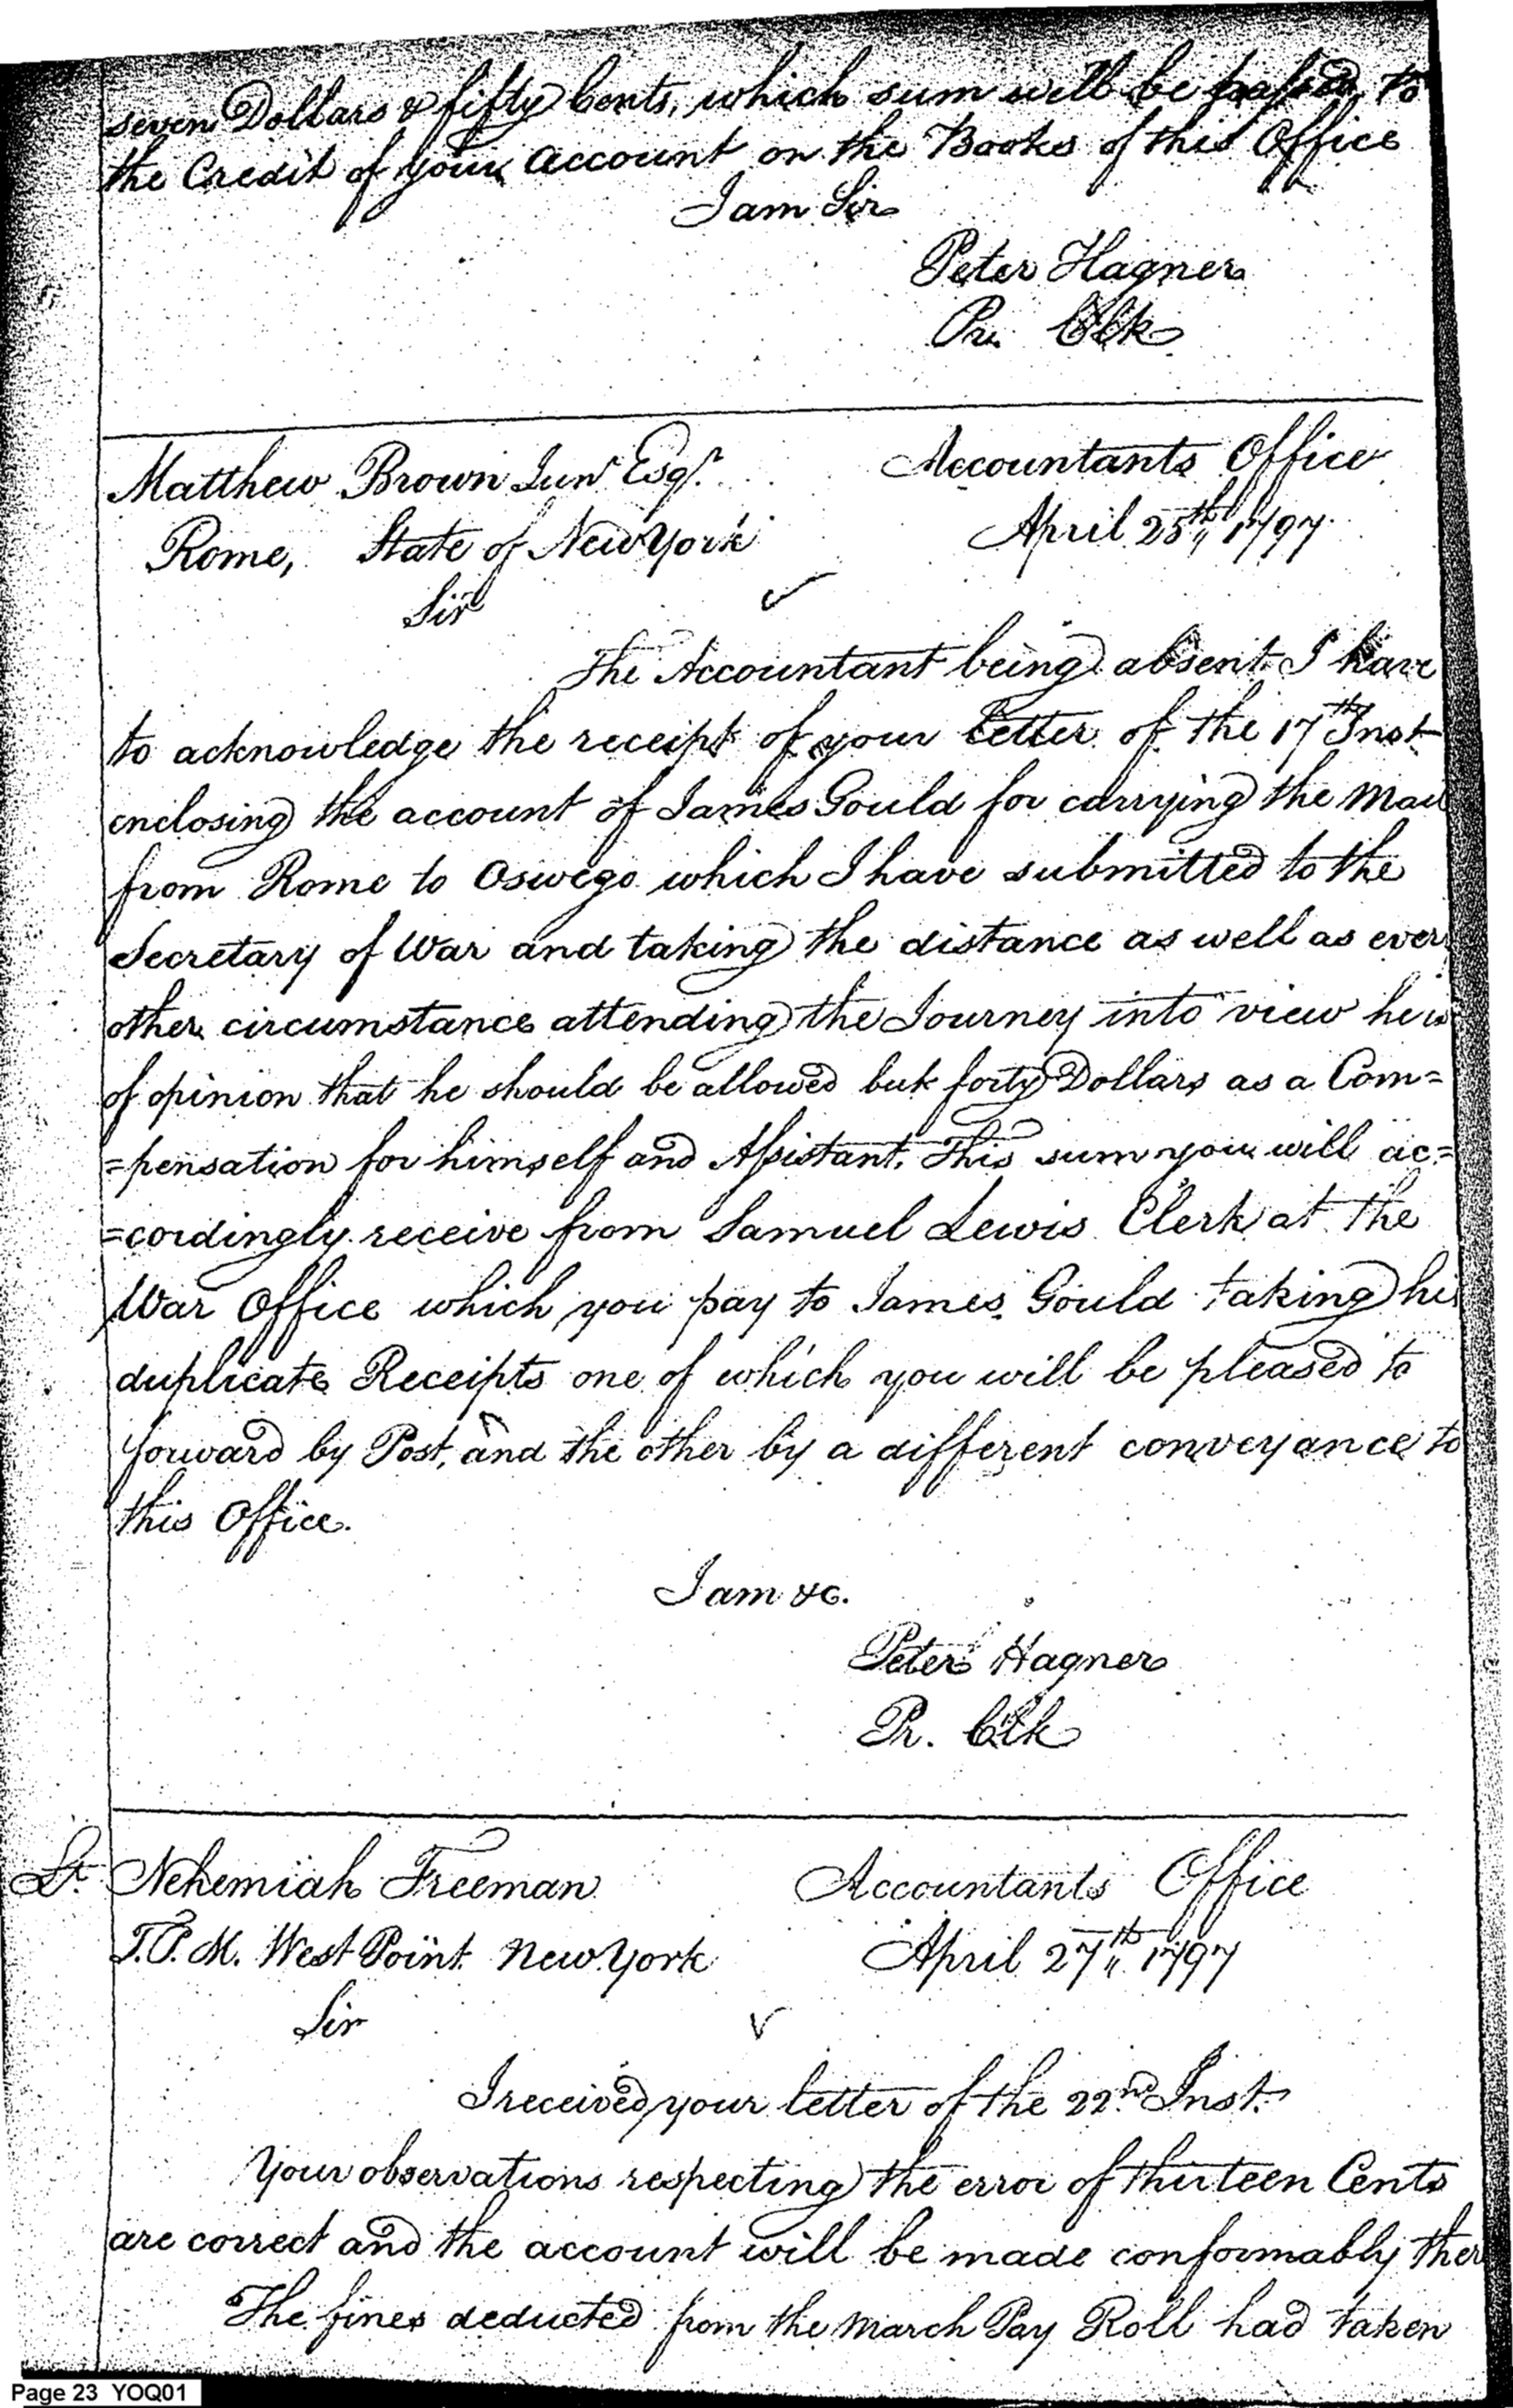 seven Dollars & fifty Cents, which sum will be passed to
the Credit of your account on the Books of this Office
I am Sir
Peter Hagner
Pr. Clk
Matthew Brown Junr Esqr.
Accountants Office
Rome, State of New York
April 25th, 1797.
Sir
The Accountant being absent I have
to acknowledge the receipt of your letter of the 17th Inst
enclosing the account of James Gould for carrying the Mail
from Rome to Oswego which I have submitted to the
Secretary of War and taking the distance as well as every
other circumstance attending the Journey into view he is
of opinion that he should be allowed but forty Dollars as a Com=
=pensation for himself and Assistant. This sum you will ac=
=cordingly receive from Samuel Lewis Clerk at the
War Office which you pay to James Gould taking his
duplicate Receipts one of which you will be pleased to
forward by Post, and the other by a different conveyance to
this Office.
I am &c.
Peter Hagner
Pr. Clk
Lt. Nehemiah Freeman
Accountants Office
T.P.M. West Point New York
April 27th 1797
Sir
I received your letter of the 22nd Inst.
Your observations respecting the error of thirteen Cents
are correct and the account will be made conformably ther
The fines deducted from the March Pay Roll had taken
Page 23 YOQ01